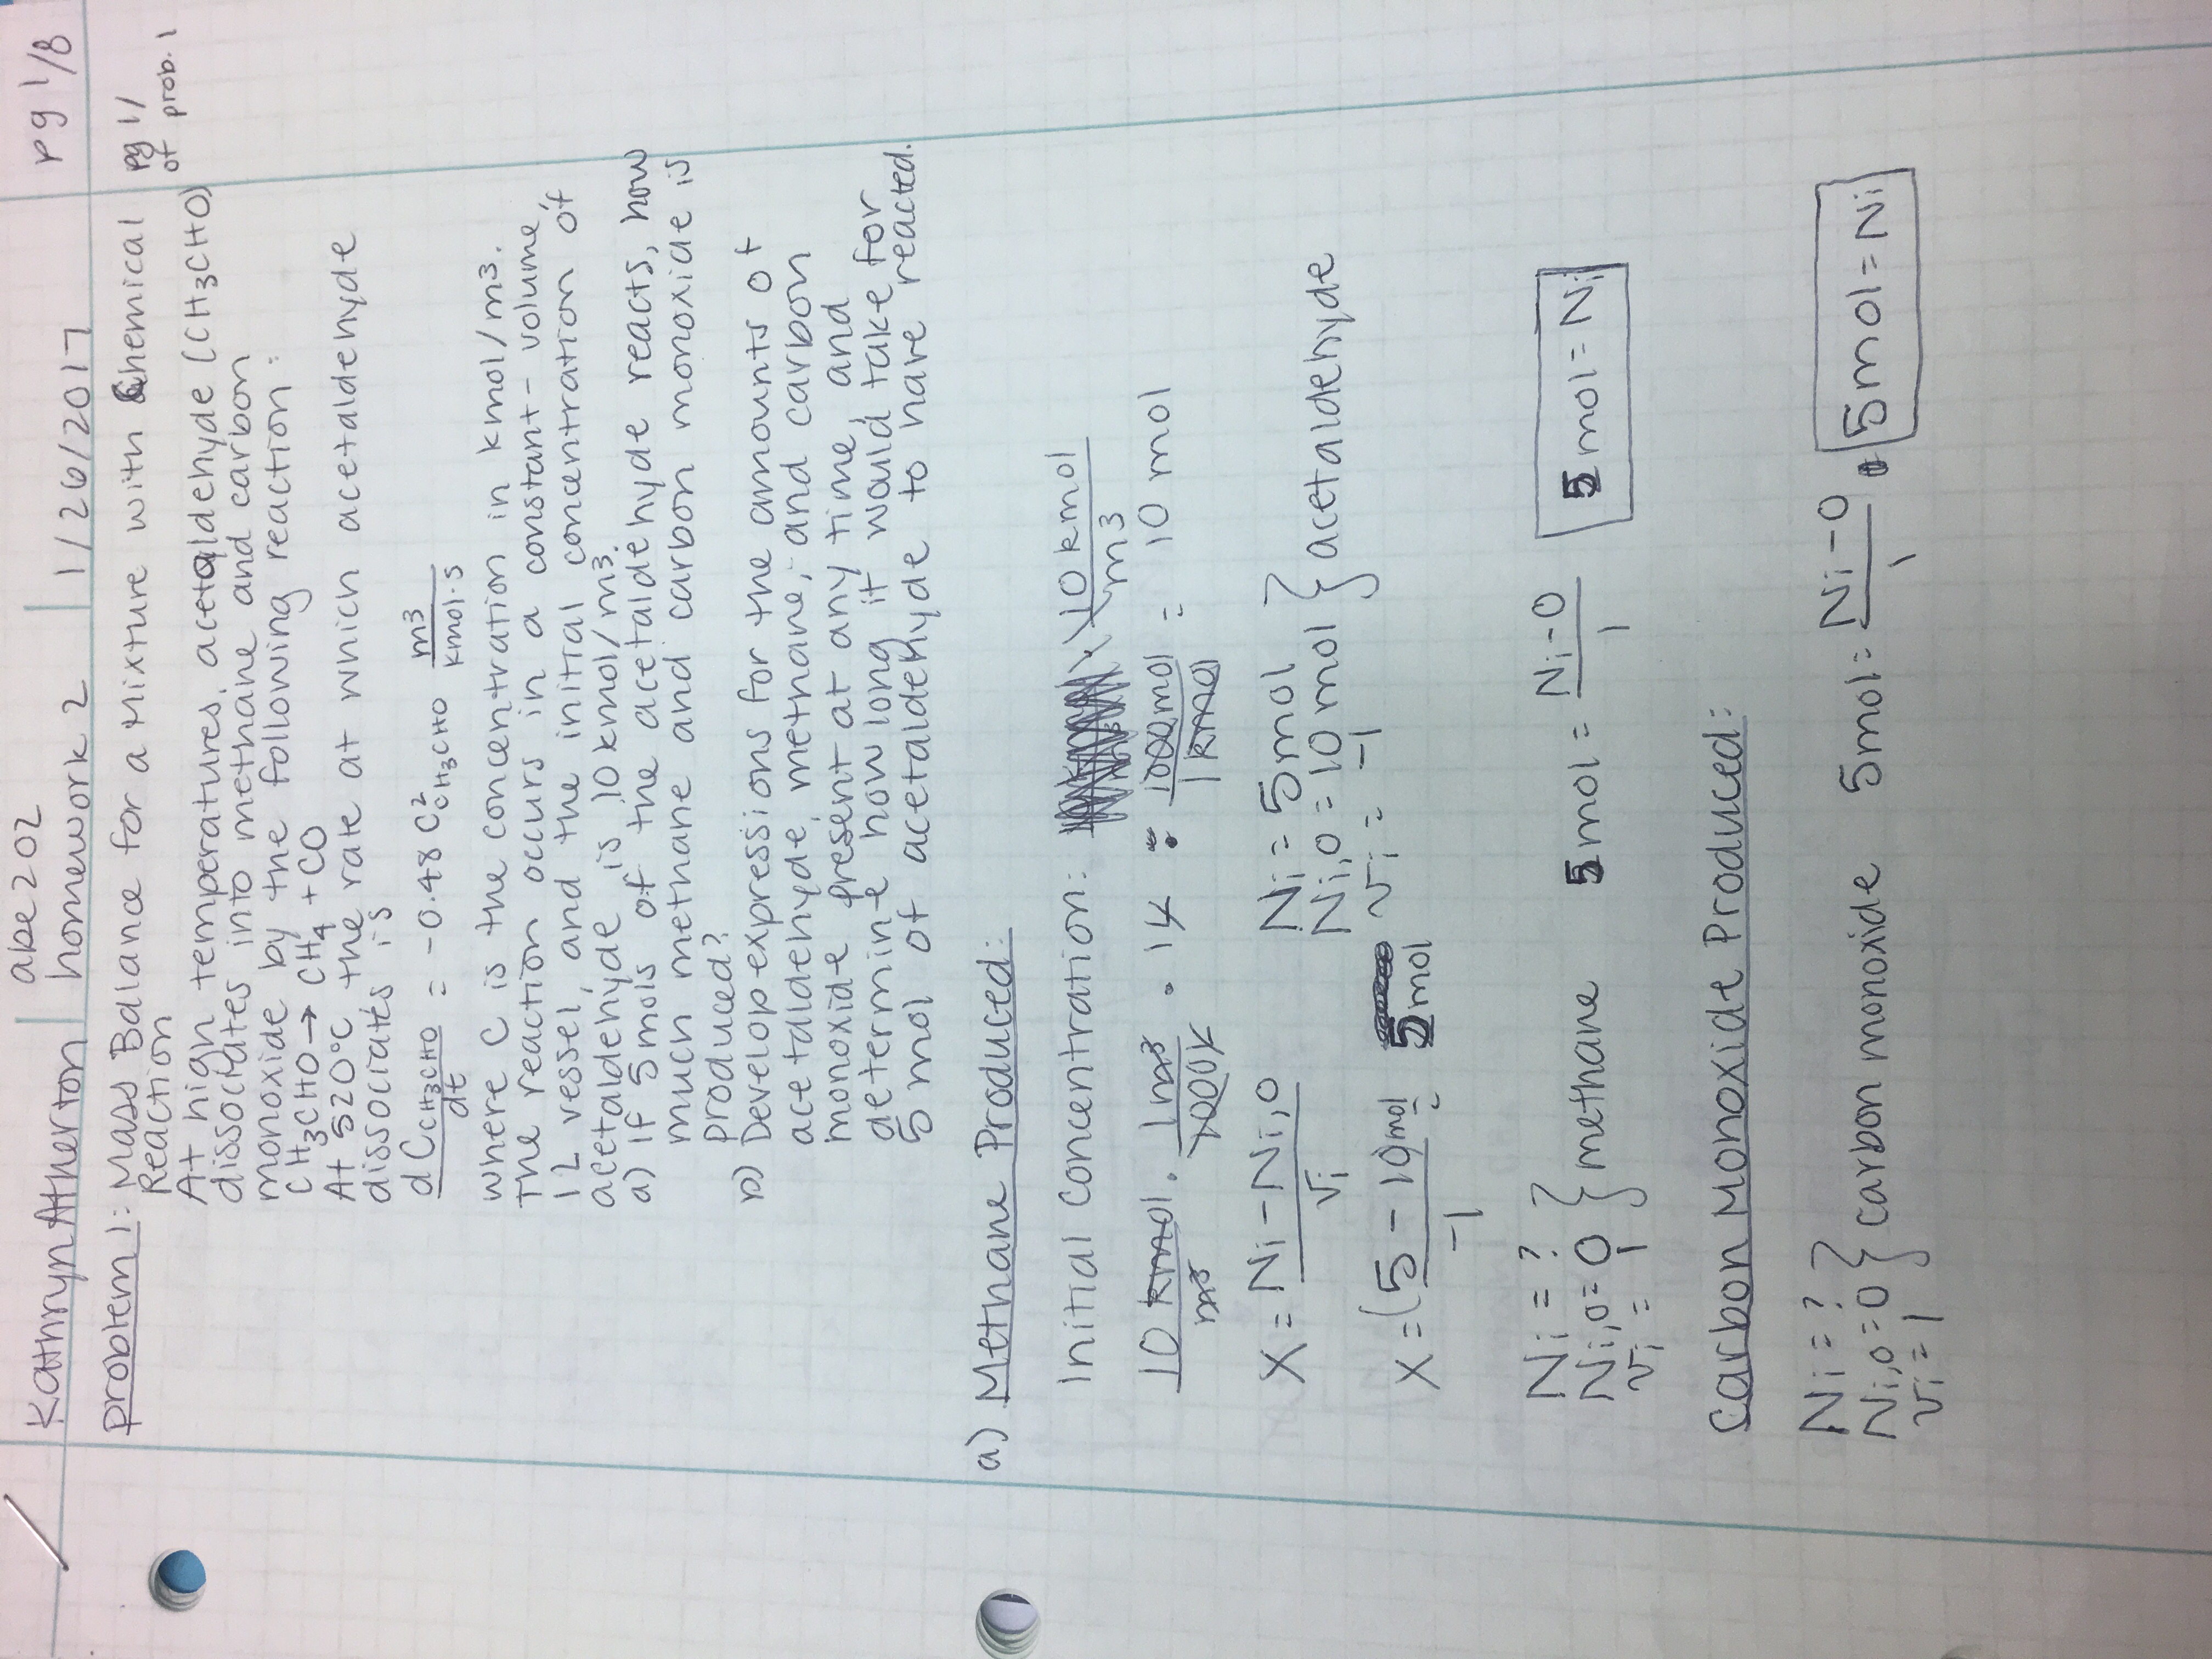 Kathryn Atherton
abe 202
homework 2
1/26/2017
pg 1/8
problem 1: Mass Balance for a Mixture with Chemical
Reaction
pg 1/
of prob. 1
At high temperatures, acetaldehyde (CH3CHO)
dissociates into methane and carbon
monoxide by the following reaction:
CH3CHO → CH4 + CO
At 520°C, the rate at which acetaldehyde
dissociates is
dC_CH3CHO/dt = -0.48 C²_CH3CHO m3/kmol·s
where C is the concentration in kmol/m3.
The reaction occurs in a constant-volume,
1L vessel, and the initial concentration of
acetaldehyde is 10 kmol/m3.
a) If 5 mols of the acetaldehyde reacts, how
much methane and carbon monoxide is
produced?
b) Develop expressions for the amounts of
acetaldehyde, methane, and carbon
monoxide present at any time, and
determine how long it would take for
5 mol of acetaldehyde to have reacted.
a) Methane Produced:
Initial Concentration: 10 kmol/m3
10 kmol/m3 · 1m3/1000L · 1L · 1000mol/1kmol = 10 mol
X = Ni - Ni,0/vi
Ni = 5 mol
Ni,0 = 10 mol } acetaldehyde
vi = -1
X = (5 - 10)mol/-1 = 5 mol
Ni = ?
Ni,0 = 0 } methane
vi = 1
5 mol = Ni - 0/1
5 mol = Ni
Carbon Monoxide Produced:
Ni = ?
Ni,0 = 0 } carbon monoxide
vi = 1
5 mol = Ni - 0/1
5 mol = Ni